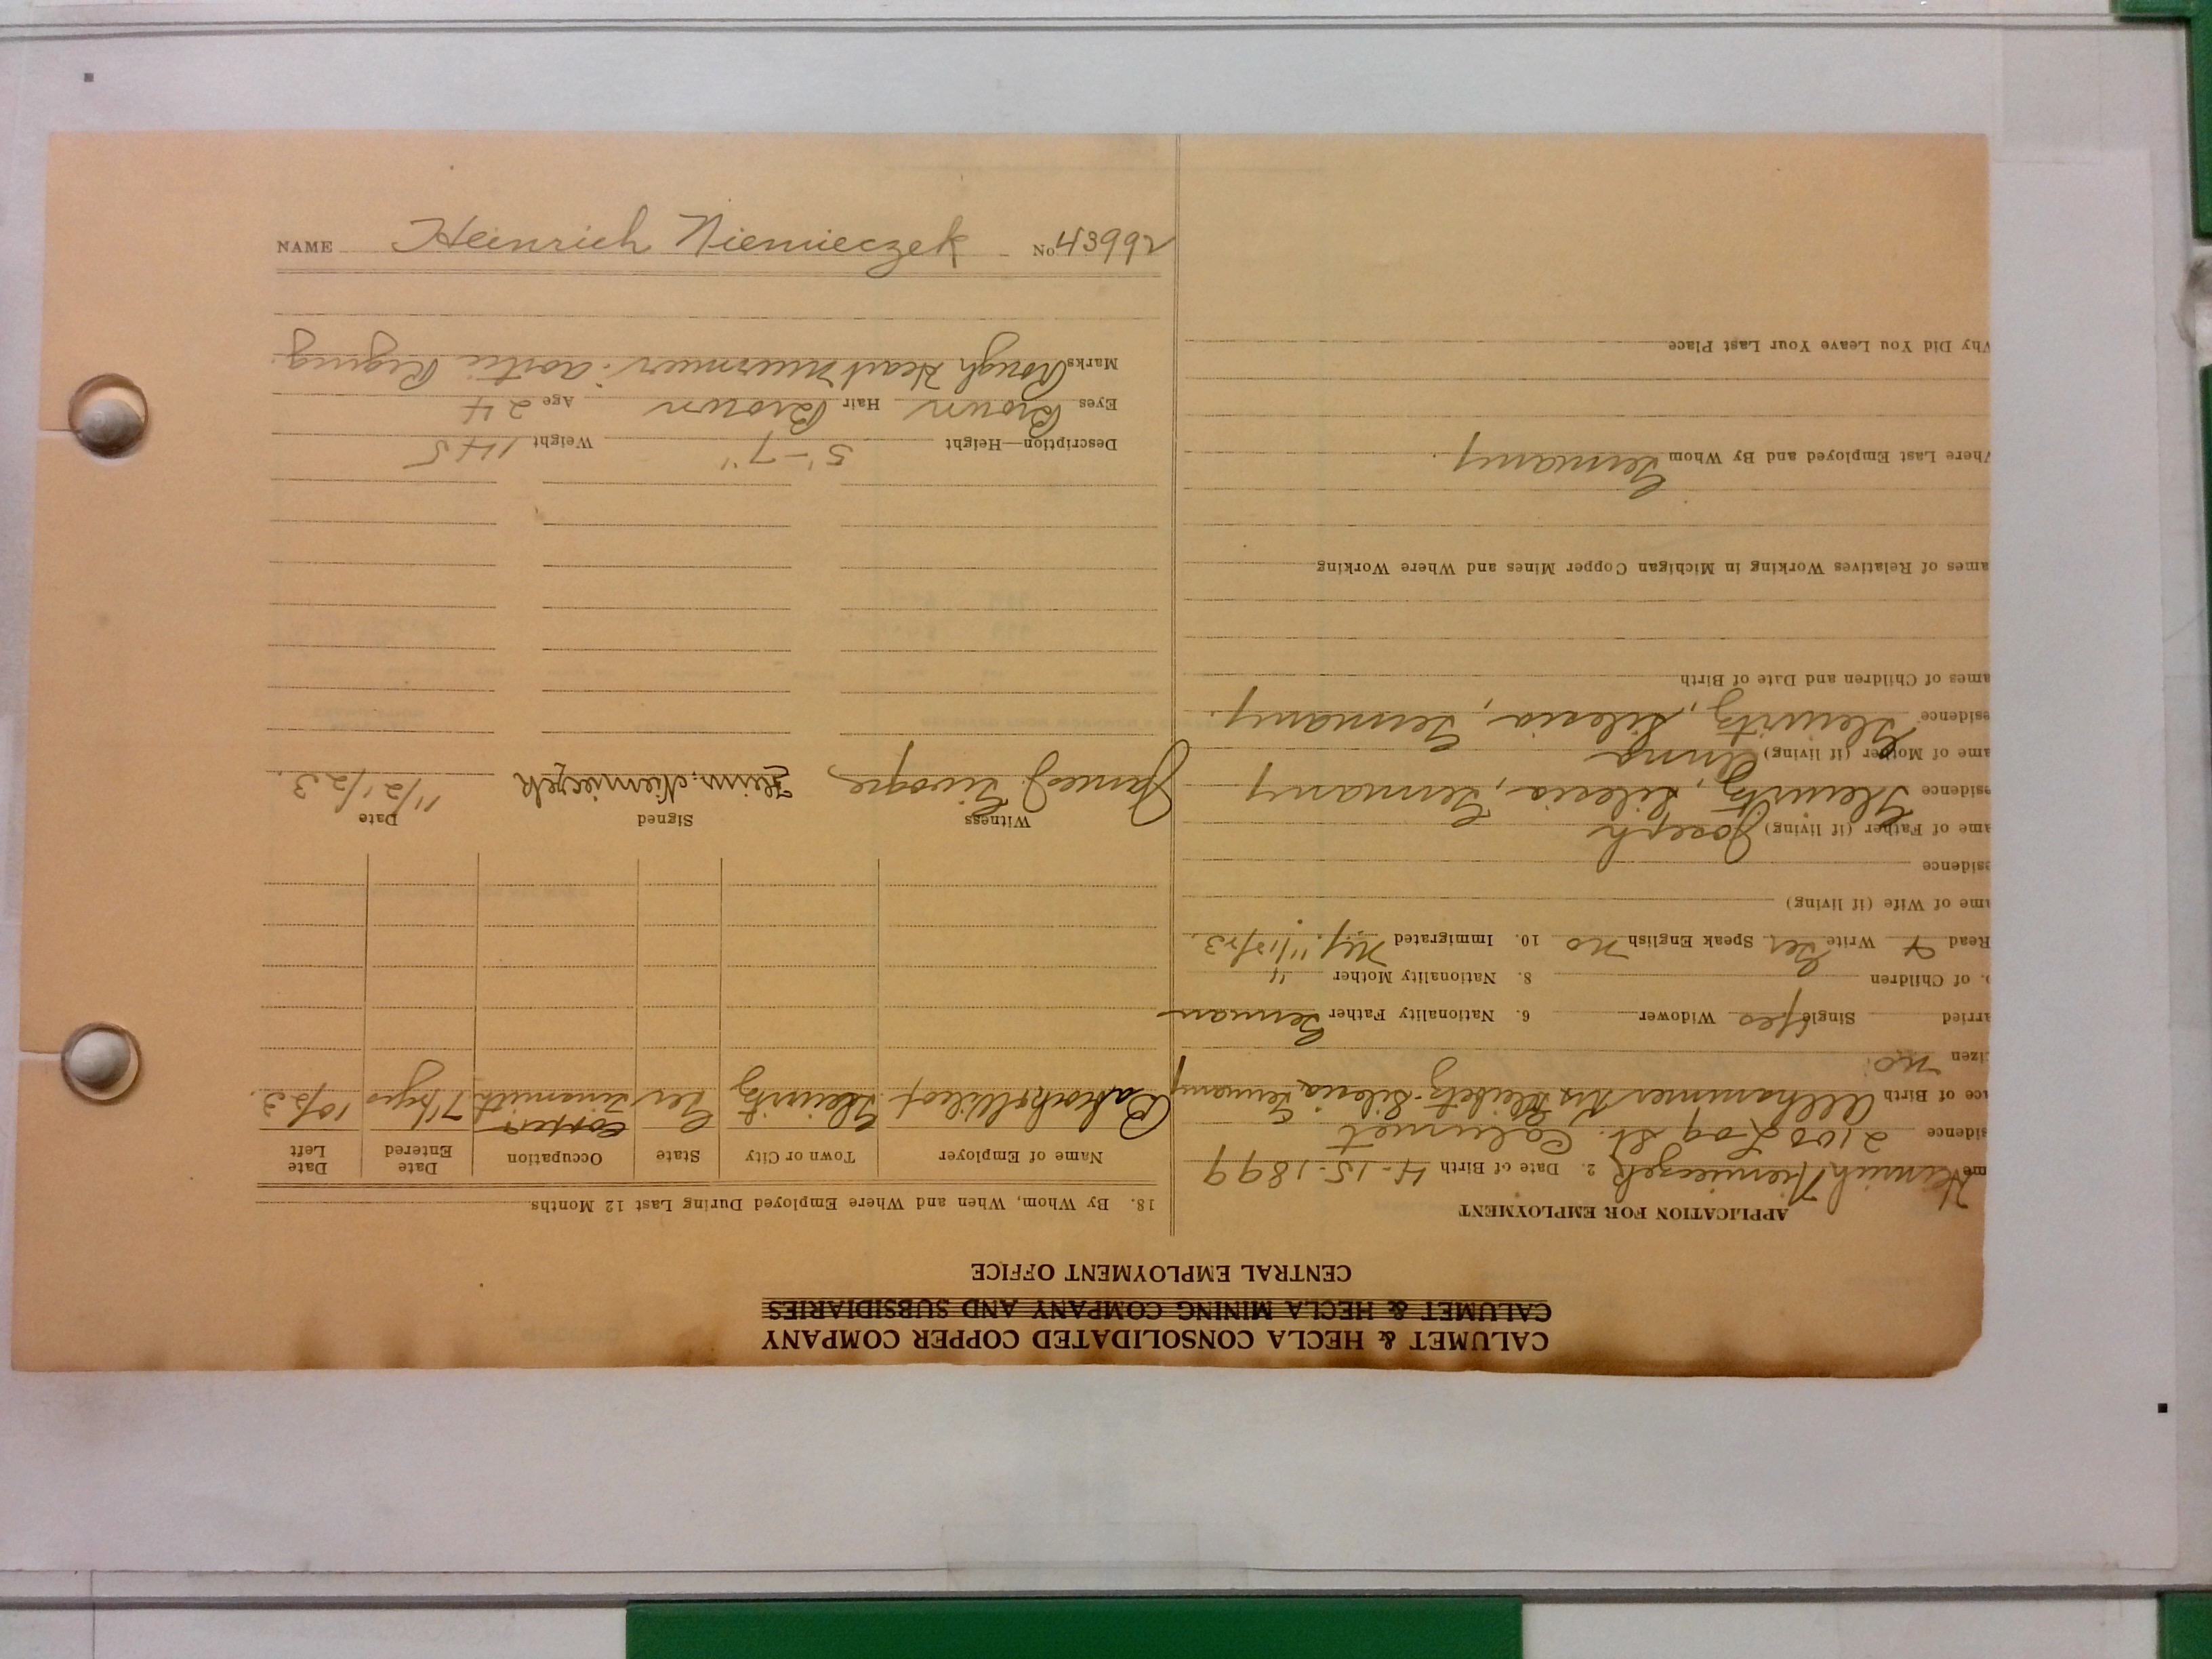 CALUMET & HECLA CONSOLIDATED COPPER COMPANY
CALUMET & HECLA MINING COMPANY AND SUBSIDIARIES
CENTRAL EMPLOYMENT OFFICE
APPLICATION FOR EMPLOYMENT
me Heinrich Niemieczek 2. Date of Birth 4-15-1899
sidence 2100 Log St. Calumet
ace of Birth Silesia Germany
izen no.
arried Single yes Widower 6. Nationality Father German
o. of Children 8. Nationality Mother "
Read & Write Ger Speak English no 10. Immigrated N.Y. 11/13/23.
ame of Wife (if living)
esidence
ame of Father (if living) Joseph
esidence Gleiwitz, Silesia, Germany
ame of Mother (if living) Anna
esidence Gleiwitz, Silesia, Germany.
ames of Children and Date of Birth
ames of Relatives Working in Michigan Copper Mines and Where Working
Where Last Employed and By Whom Germany.
Why Did You Leave Your Last Place
18. By Whom, When and Where Employed During Last 12 Months.
Name of Employer Town or City State Occupation Date Entered Date Left
Gleiwitz Ger 10/23.
Witness Signed Date
James J. Heinr. Niemieczek 11/21/23.
Description—Height 5'-7" Weight 145
Eyes Brown Hair Brown Age 24
Marks Rough Heart Murmur. aortic Regurg.
NAME Heinrich Niemieczek No 43992